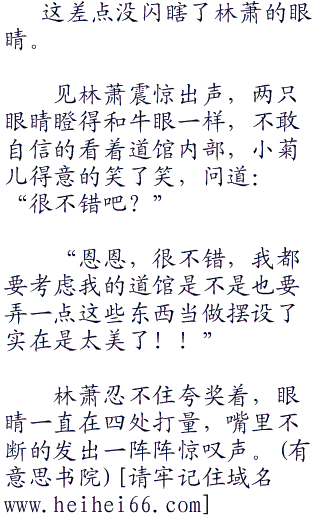 这差点没闪瞎了林萧的眼
睛。
见林萧震惊出声，两只
眼睛瞪得和牛眼一样，不敢
自信的看着道馆内部，小菊
儿得意的笑了笑，问道：
“很不错吧？”
“恩恩，很不错，我都
要考虑我的道馆是不是也要
弄一点这些东西当做摆设了
实在是太美了！！”
林萧忍不住夸奖着，眼
睛一直在四处打量，嘴里不
断的发出一阵阵惊叹声。(有
意思书院)[请牢记住域名
www.heihei66.com]